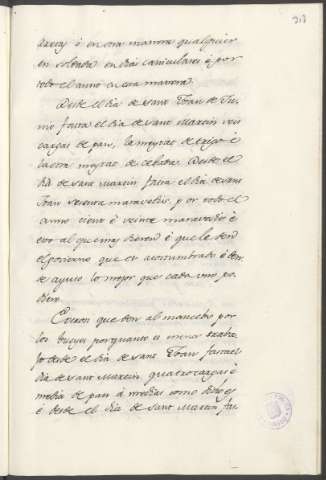 313
en soldada en dias caniculares o por
todo el anno en esta manera
Desde el dia de sant Joan de Ju-
nio fasta el dia de sant Martin seis
cargas de pan, la meytad de trigo é
la otra meytad de cebada. Desde el
dia de sant Martin fasta el dia de sant
Joan sesenta maravedis, e por todo el
anno ciento é veinte maravedis é
eso al que mas dieren é que le den
el gobierno que es acostumbrado é den-
de ayuso lo mejor que cada uno po-
diere
que den al mancebo por
los bueyes porquanto es menos traba-
jo desde el dia de sant Joan fasta el
dia de sant Martin quatro cargas é
media de pan á medias como dicho es
é desde el dia de sant Martin fas